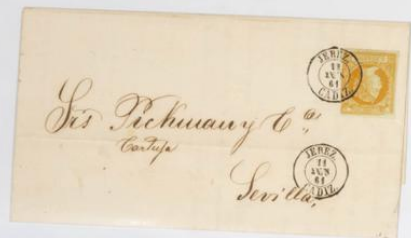 JEREZ
11
JUN
61
CADIZ.
Srs Pickman y Cª
Cartuja
JEREZ
11
JUN
61
CADIZ.
Sevilla,